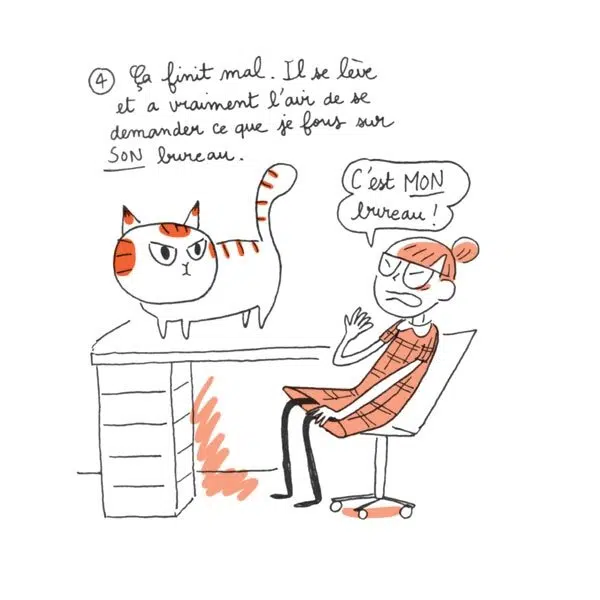 ④ Ça finit mal. Il se lève
et a vraiment l'air de se
demander ce que je fous sur
SON bureau.
C'est MON
bureau !